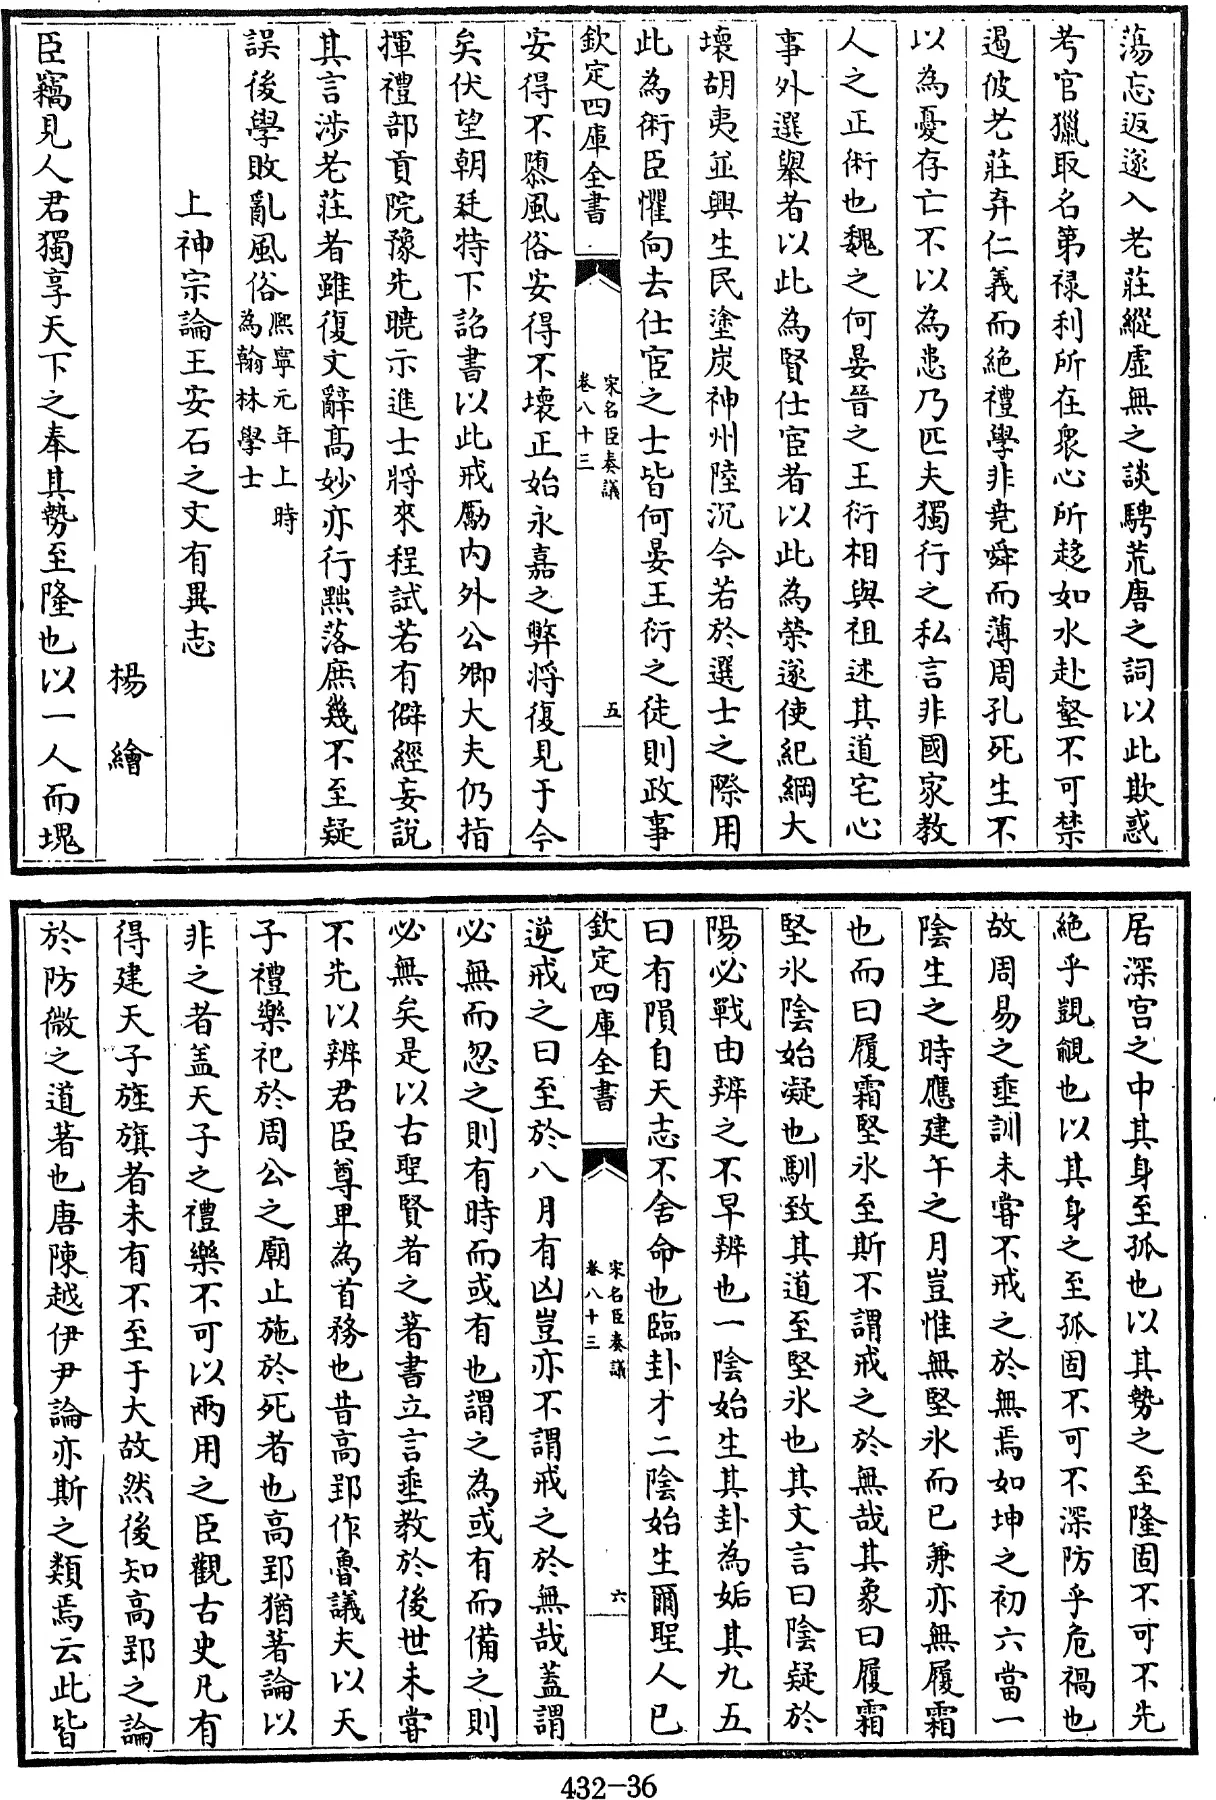 蕩忘返遂入老莊縱虛無之談騁荒唐之詞以此欺惑
考官獵取名第祿利所在衆心所趍如水赴壑不可禁
遏彼老莊弃仁義而絶禮學非堯舜而薄周孔死生不
以為憂存亡不以為患乃匹夫獨行之私言非國家教
人之正術也魏之何晏晉之王衍相與祖述其道宅心
事外選舉者以此為賢仕宦者以此為榮遂使紀綱大
壞胡夷並興生民塗炭神州陸沉今若於選士之際用
此為術臣懼向去仕宦之士皆何晏王衍之徒則政事
欽定四庫全書
宋名臣奏議
卷八十三
五
安得不隳風俗安得不壞正始永嘉之弊將復見于今
矣伏望朝廷特下詔書以此戒勵内外公卿大夫仍指
揮禮部貢院豫先曉示進士將來程試若有僻經妄說
其言涉老莊者雖復文辭髙妙亦行黜落庶幾不至疑
誤後學敗亂風俗熈寧元年上時
為翰林學士
上神宗論王安石之文有異志
楊繪
臣竊見人君獨享天下之奉其勢至隆也以一人而塊
居深宫之中其身至孤也以其勢之至隆固不可不先
絶乎覬覦也以其身之至孤固不可不深防乎危禍也
故周易之垂訓未嘗不戒之於無焉如坤之初六當一
隂生之時應建午之月豈惟無堅氷而已兼亦無履霜
也而曰履霜堅氷至斯不謂戒之於無哉其象曰履霜
堅氷隂始凝也馴致其道至堅氷也其文言曰隂疑於
陽必戰由辨之不早辨也一隂始生其卦為姤其九五
曰有隕自天志不舍命也臨卦才二隂始生爾聖人已
欽定四庫全書
宋名臣奏議
卷八十三
六
逆戒之曰至於八月有凶豈亦不謂戒之於無哉蓋謂
必無而忽之則有時而或有也謂之為或有而備之則
必無矣是以古聖賢者之著書立言垂教於後世未嘗
不先以辨君臣尊卑為首務也昔高郢作魯議夫以天
子禮樂祀於周公之廟止施於死者也高郢猶著論以
非之者盖天子之禮樂不可以兩用之臣觀古史凡有
得建天子旌旗者未有不至于大故然後知高郢之論
於防微之道著也唐陳越伊尹論亦斯之類焉云此皆
432-36